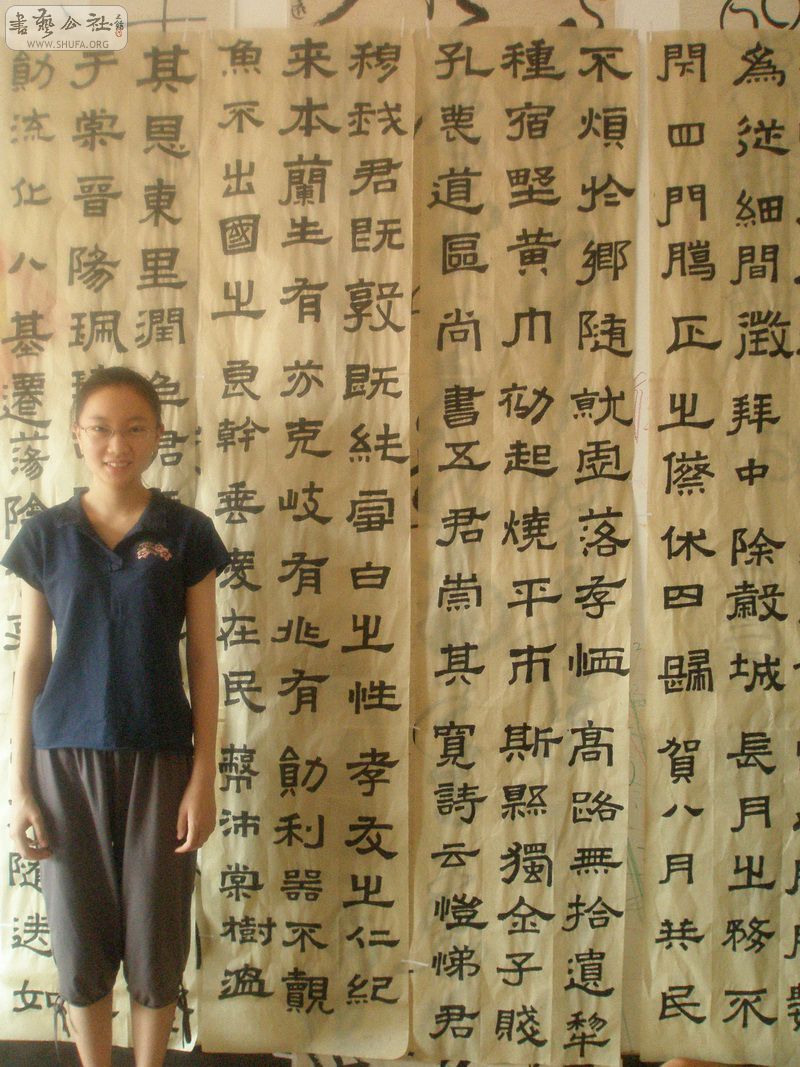 書藝公社
WWW.SHUFA.ORG
為從細閒徵拜中除榖城長月之務不
閇四門騰正之僚休囚歸賀八月共民
不煩於鄉隨就虛落存恤高路無拾遺犂
種宿野黃巾初起燒平市斯縣獨金子賤
孔喪道區尚書五君崇其寬詩云愷悌君
穆我君既敦既純雪白之性孝友之仁紀
来本蘭生有芬克岐有兆有勛利器不覿
魚不出國之良幹垂愛在民幣沛棠樹溫
其恩東里潤色君
于棠晉陽珮
勛流化八基遷蕩陰 隨送如